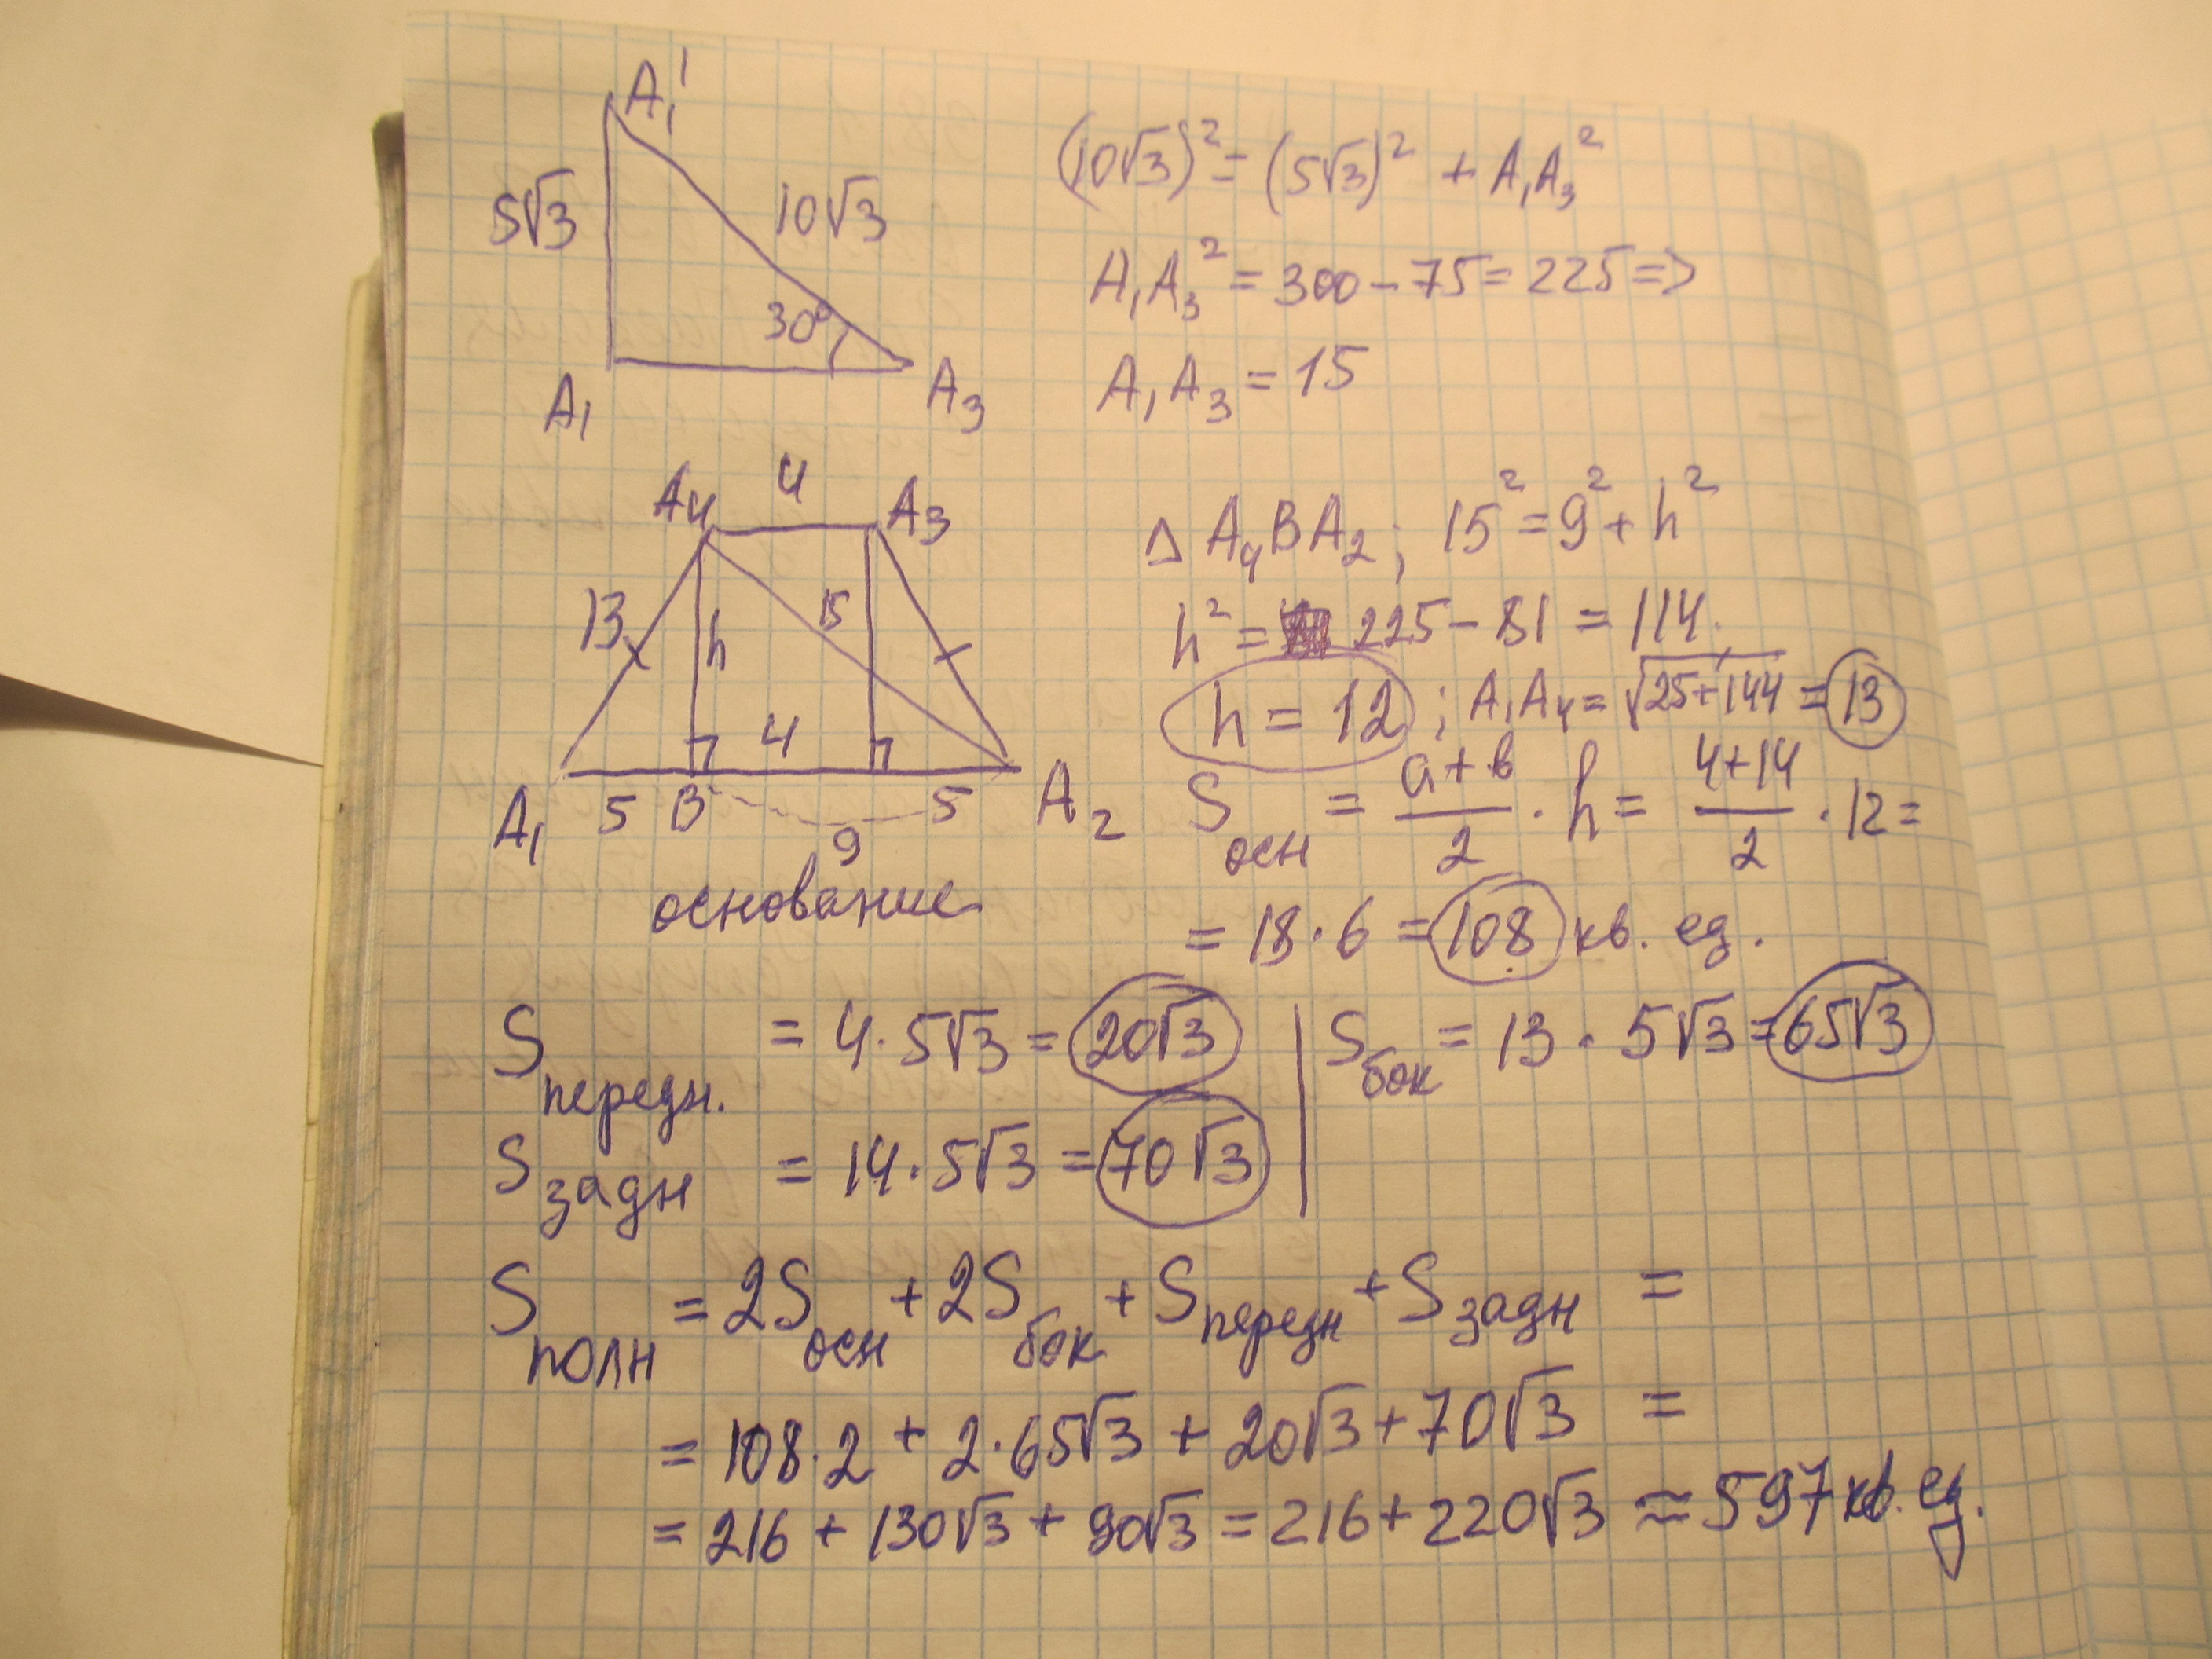 A₁'
5√3
10√3
30°
A₁
A₃
(10√3)² = (5√3)² + A₁A₃²
A₁A₃² = 300 - 75 = 225 =>
A₁A₃ = 15
A₄ 4 A₃
13 h 15
4
A₁ 5 B 5 A₂
9
основание
Δ A₄BA₂; 15² = 9² + h²
h² = 225 - 81 = 114.
h = 12 ; A₁A₄ = √25+144 = 13
Sосн = a+в/2 · h = 4+14/2 · 12 =
= 18 · 6 = 108 кв. ед.
Sпередн. = 4 · 5√3 = 20√3
Sзадн = 14 · 5√3 = 70√3
Sбок = 13 · 5√3 = 65√3
Sполн = 2Sосн + 2Sбок + Sпередн + Sзадн =
= 108 · 2 + 2 · 65√3 + 20√3 + 70√3 =
= 216 + 130√3 + 90√3 = 216 + 220√3 ≈ 597 кв. ед.